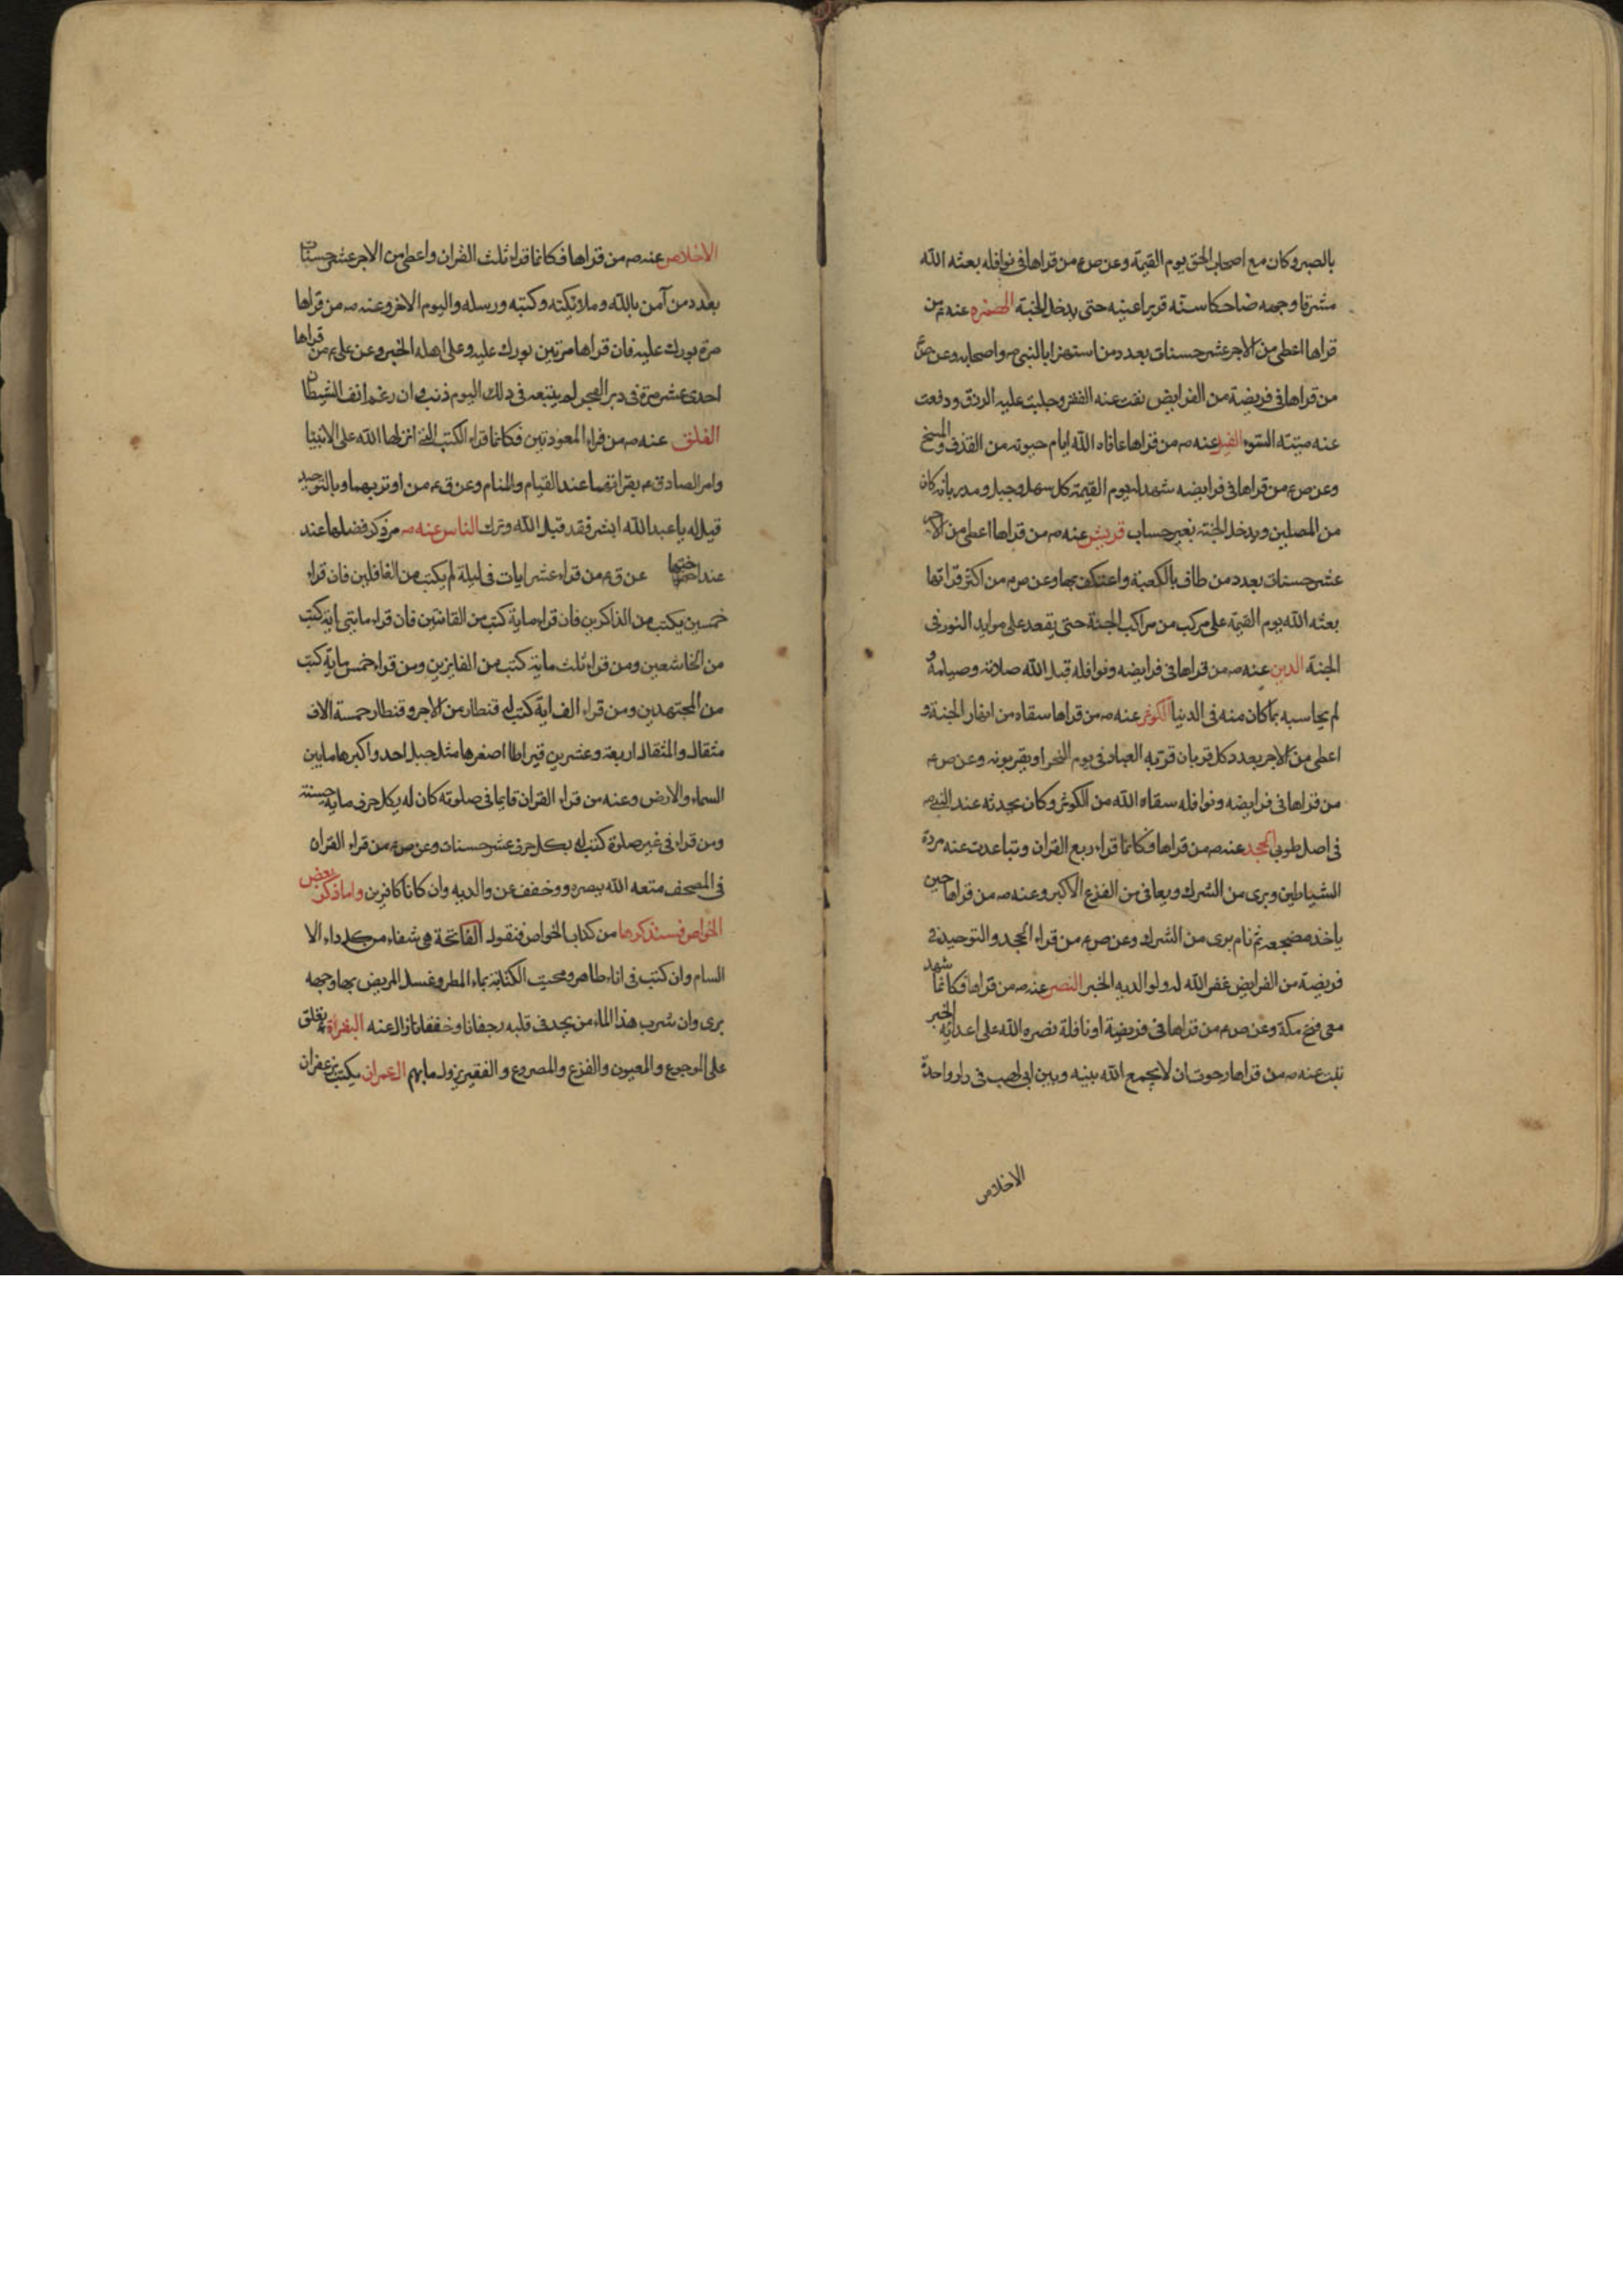 بالصبر وكان مع اصحاب الحق يوم القيمة وعن ص ع من قراها فى نوافله بعثه الله
مشرقا وجهه ضاحكا سنه قريرا عينه حتى يدخل الجنة الهمزه عنه ص من
قراها اعطى من الاجر عشر حسنات بعدد من استهزا بالنبى ص واصحابه وعن ص
من قراها فى فريضة من الفرايض نفت عنه الفقر وجلبت عليه الرزق ودفعت
عنه ميتة السوء الفيل عنه ص من قراها عافاه الله ايام حيوته من القذف والمسخ
وعن ص ع من قراها فى فرايضه شهد له يوم القيمة كل سهل وجبل ومدر بانه كان
من المصلين ويدخل الجنة بغير حساب قريش عنه ص من قراها اعطى من الاجر
عشر حسنات بعدد من طاف بالكعبة واعتكف بها وعن ص ع من اكثر قراتها
بعثه الله يوم القيمة على مركب من مراكب الجنة حتى يقعد على موايد النور فى
الجنة الدين عنه ص من قراها فى فرايضه ونوافله قبل الله صلاته وصيامه و
لم يحاسبه بما كان منه فى الدنيا الكوثر عنه ص من قراها سقاه من انهار الجنة و
اعطى من الاجر بعدد كل قربان قربه العباد فى يوم النحر او يقربونه وعن ص ع
من قراها فى فرايضه ونوافله سقاه الله من الكوثر وكان محدثه عند النبى ص
فى اصل طوبى الجحد عنه ص من قراها فكانما قراء ربع القران وتباعدت عنه مردة
الشياطين وبرى من الشرك ويعافى من الفزع الاكبر وعنه ص من قراها حين
ياخذ مضجعه ثم نام برى من الشرك وعن ص ع من قراء الجحد والتوحيد فى
فريضة من الفرايض غفر الله له ولوالديه الخبر النصر عنه ص من قراها فكانما شهد
معى فتح مكة وعن ص ع من قراها فى فريضة او نافلة نصره الله على اعدائه الخبر
تبت عنه ص من قراها رجوت ان لا يجمع الله بينه وبين ابى لهب فى دار واحدة
الاخلاص
الاخلاص عنه ص من قراها فكانما قراء ثلث القران واعطى من الاجر عشر حسنات
بعدد من آمن بالله وملائكته وكتبه ورسله واليوم الاخر وعنه ص من قراها
مرة بورك عليه فان قراها مرتين بورك عليه وعلى اهله الخبر وعن على ع من قراها
احدى عشر مرة فى دبر الفجر لم يتبعه فى ذلك اليوم ذنب وان رغم انف الشيطان
الفلق عنه ص من قراء المعوذتين فكانما قراء الكتب التى انزلها الله على الانبيا
وامر الصادق ع بقراتهما عند القيام والمنام وعن ق ع من اوتر بهما وبالتوحيد
قيل له يا عبد الله ابشر فقد قبل الله وترك الناس عنه ص مر ذكر فضلها عند
عند اختها عن ق ع من قراء عشر ايات فى ليلة لم يكتب من الغافلين فان قراء
خمسين يكتب من الذاكرين فان قراء ماية كتب من القانتين فان قراء مايتى اية كتب
من الخاشعين ومن قراء ثلث ماية كتب من الفايزين ومن قراء خمس ماية كتب
من المجتهدين ومن قراء الف اية كتب له قنطار من الاجر وقنطار خمسة الاف
مثقال والمثقال اربعة وعشرين قيراطا اصغرها مثل جبل احد واكبرها ما بين
السماء والارض وعنه من قراء القران قايما فى صلوته كان له بكل حرف ماية حسنة
ومن قراء فى غير صلوة كتب له بكل حرف عشر حسنات وعن ص ع من قراء القران
فى المصحف متعه الله ببصره وخفف عن والديه وان كانا كافرين واما ذكر بعض
الخواص فسنذكرها من كتاب الخواص فنقول الفاتحة هى شفاء من كل داء الا
السام وان كتبت فى اناء طاهر ومحيت الكتابة بماء المطر وغسل المريض بها وجهه
برى وان شرب هذا الماء من يجد فى قلبه رجفانا وخفقانا زال عنه البقراة تعلق
على الموجوع والمعيون والفزع والمصروع والفقير يزول ما بهم العمران يكتب بزعفران